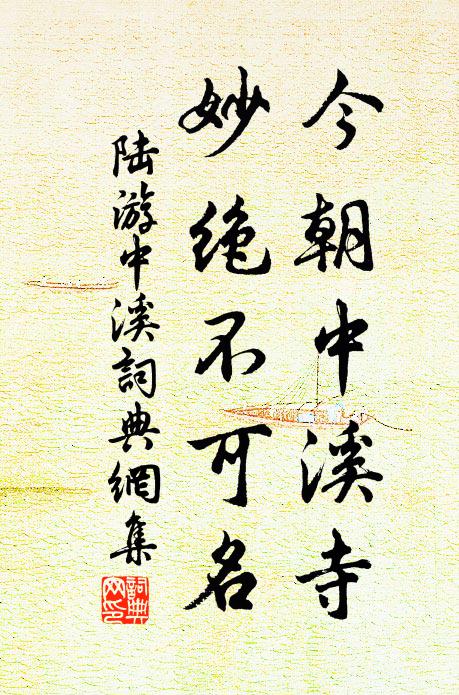 今朝中溪寺
妙绝不可名
陆游中溪詞典網集
詞典
网印